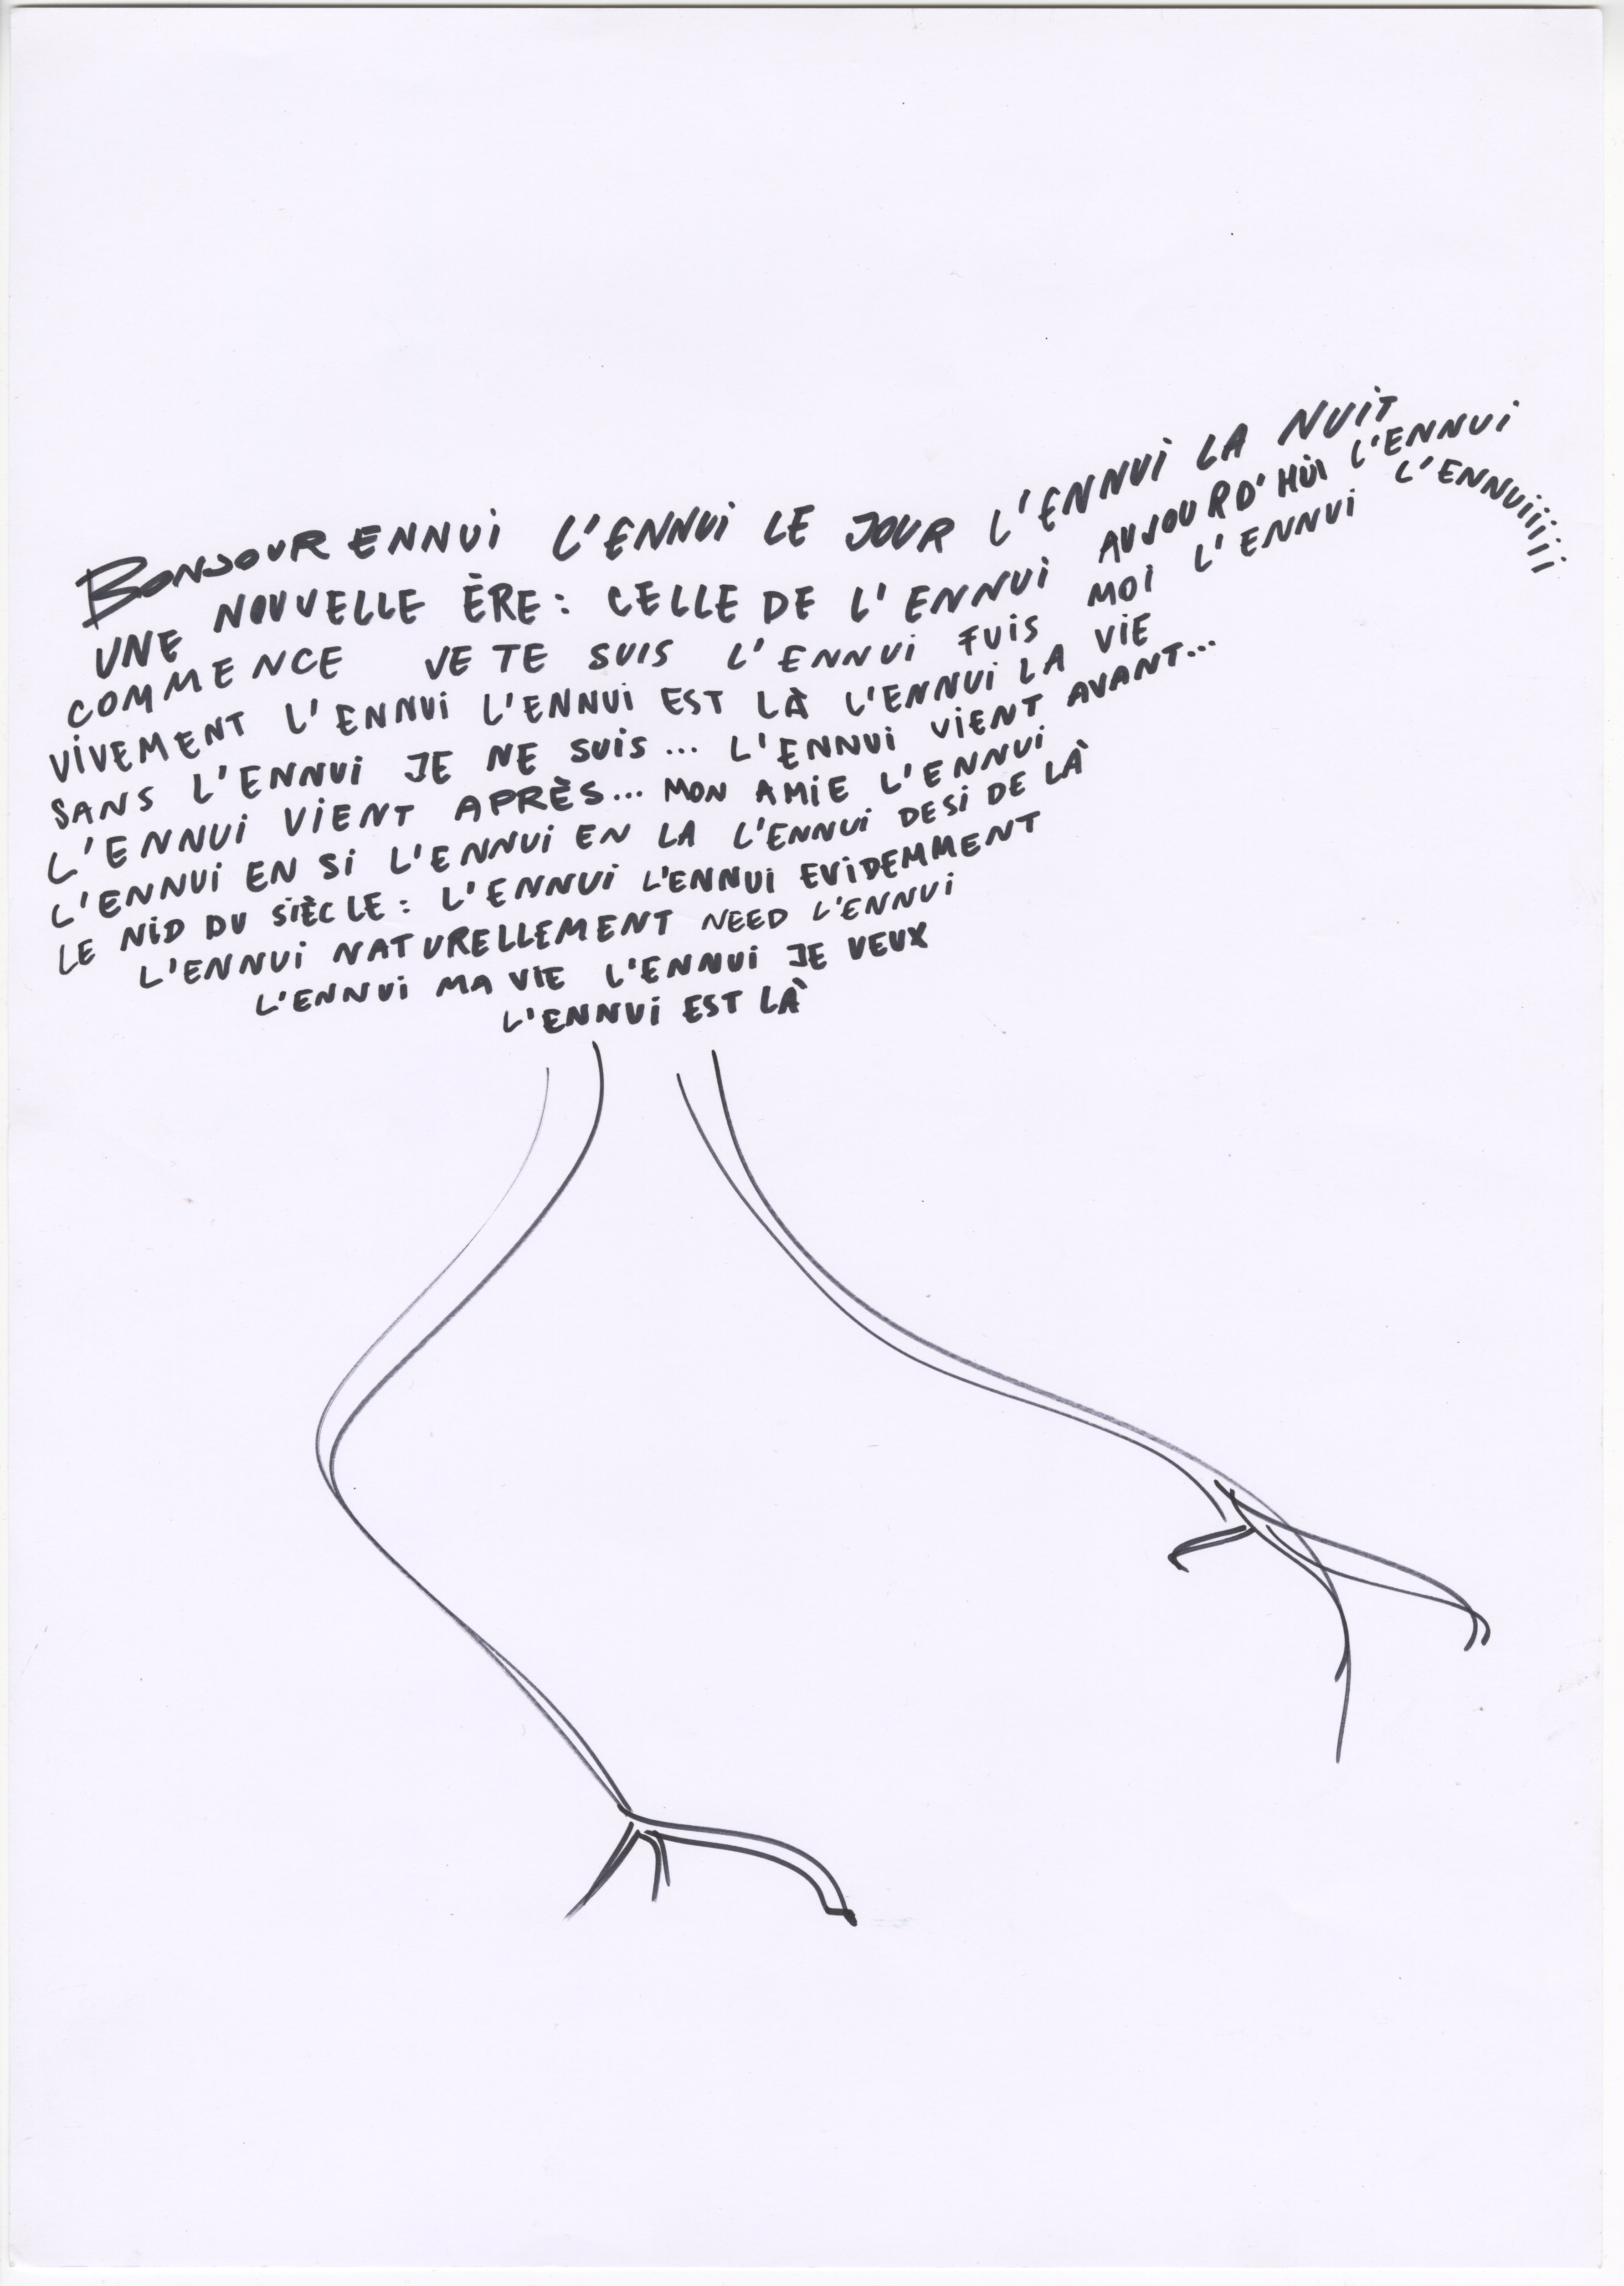 BONJOUR ENNUi L'ENNUi LE JOUR L'ENNUi LA NUiT
UNE NOUVELLE ÈRE : CELLE DE L'ENNUi AUJOURD'HUi L'ENNUi
COMMENCE JE TE SUiS L'ENNUi FUiS MOi L'ENNUi L'ENNUiiiii
ViVEMENT L'ENNUi L'ENNUi EST LÀ L'ENNUi LA ViE
SANS L'ENNUi JE NE SUiS... L'ENNUi ViENT AVANT...
L'ENNUi ViENT APRÈS... MON AMiE L'ENNUi
L'ENNUi EN Si L'ENNUi EN LA L'ENNUi DESi DE LÀ
LE NiD DU SiÈCLE : L'ENNUi L'ENNUi EViDEMMENT
L'ENNUi NATURELLEMENT NEED L'ENNUi
L'ENNUi MA ViE L'ENNUi JE VEUX
L'ENNUi EST LÀ